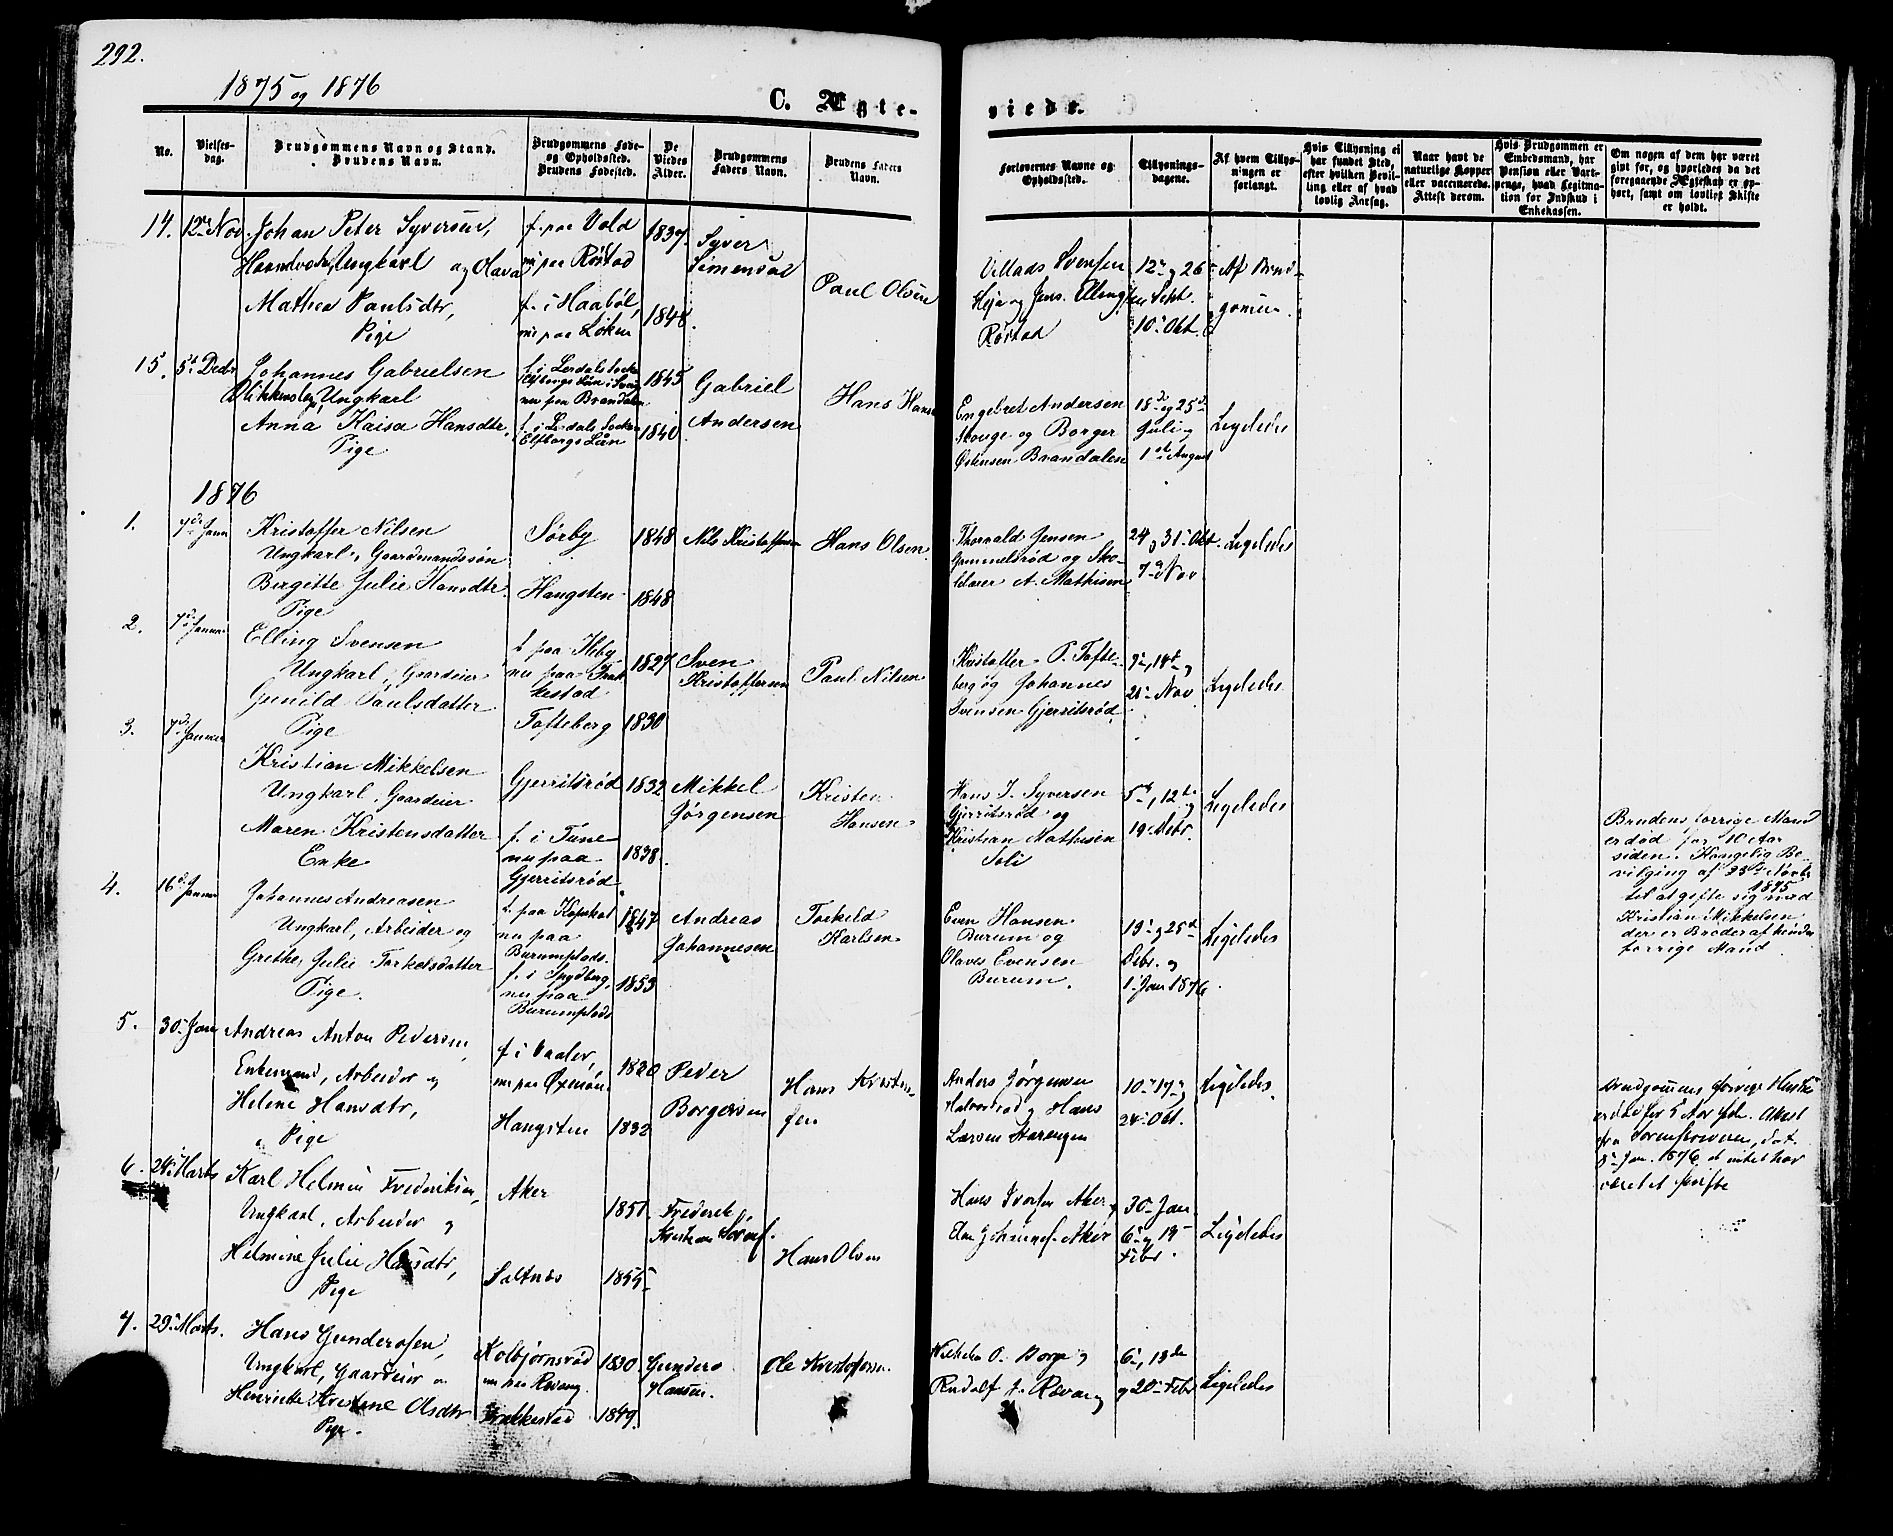 292.
1875 og 1876
C. Ægte-
viede.
No.
Vielses-
dag.
Brudgommens Navn og Stand.
Brudens Navn.
Brudgommens Føde-
og Opholdssted.
Brudens Fødested.
De
Viedes
Alder.
Brudgommens
Faders Navn.
Brudens Faders
Navn.
Forlovernes Navne og
Opholdssted.
Tillysnings-
dagene.
Af hvem Tillys-
ningen er
forlangt.
Hvis Tillysning ei
har fundet Sted,
efter hvilken Bevil-
ling eller af hvad
lovlig Aarsag.
Naar havt de
naturlige Kopper
eller vaccinerede.
Attest derom.
Hvis Brudgommen er
Embedsmand, har
Pension eller Vart-
penge, hvad Legitma-
tion for Indskud i
Enkekassen.
Om nogen af dem har været
gift før, og hvorledes da det
foregaaende Ægteskab er op-
hørt, samt om lovligt Skifte
er holdt.
14.
12te Nov.
Johan Peter Syversen,
Ungkarl og Olava
Mathea Paulsdtr,
Pige
f. paa Vold
nu paa Røstad
f. i Haabøl,
nu paa Løken
1837.
1848.
Syver
Simensen
Paul Olsen
Villads Svensen
Heja og Jens Ellingsen
Røstad
12te og 26
Sept.
10de Okt.
Af Brud-
gommen.
15.
5te Decbr
Johannes Gabrielsen
Ungkarl
Anna Kaisa Hansdtr.
Pige
f. i Lerdals Socken
Elfsborgs Län i Sverig
nu paa Brandalen
f. i Lerdals Socken
Elfborgs Län
1845
1840
Gabriel
Andersen
Hans Hans
Engebret Andersen
Skouge og Borger
Østensen Brandalen
18de og 25de
Juli og
1ste August
Ligeledes
1876
1.
7de Janu
Kristoffer Nilsen
Ungkarl, Gaardmandssøn
Birgitte Julie Hansdtr.
Pige
Sørby
Hangsten
1848
1848
Nils Kristoffersen
Hans Olsen
Thorvald Jensen
Gammelsrød og Sko-
lelærer A. Mathisen
24 og 31te Okt.
7de Nov
Ligeledes
2.
7de Januar
Elling Svensen
Ungkarl, Gaardeier
Gunild Paulsdatter
Pige
f. paa Kiby
nu paa Frak-
kestad
Tofteberg
1827
1830
Sven
Kristoffersen
Paul Nilsen
Kristoffer P. Tofte-
berg og Johannes
Svensen Gjerritsrød
7de, 14de og
21te Nov
Ligeledes
3.
7de Januar
Kristian Mikkelsen
Ungkarl, Gaardeier
Maren Kristensdatter
Enke
Gjerritsrød
f. i Tune
nu paa
Gjerritsrød
1832
1838.
Mikkel
Jørgensen
Kristen
Hansen
Hans J. Syversen
Gjerritsrød og
Kristian Mathisen
Soli
5te, 12te og
19de Debr.
Ligeledes
Brudens forrige Mand
er død for 10 Aar
siden. Kongelig Be-
vilging af 23de Novbr
1875
til at gifte sig med
Kristian Mikkelsen
der er Broder af hendes
forrige Mand
4.
16de Januar
Johannes Andreasen
Ungkarl, Arbeider og
Grethe Julie Torkelsdatter
Pige.
f. paa Kopskal
nu paa
Burumplads.
f. i Spydberg,
nu paa
Burumplads
1847
1853
Andreas
Johannesen
Torkeld
Karlsen
Even Hansen
Burum og
Olaves Evensen
Burum.
19de og 25de
Debr. og
1. Jan 1876.
Ligeledes
5.
30te Jan
Andreas Anton Pedersen,
Enkemand, Arbeider og
Helene Hansdtr,
Pige
f. i Vaaler,
nu paa
Hangsten
1820
1832
Peder
Borgersen
Hans Kristen-
sen
Anders Jørgensen
Halvorsrød og Hans
Larsen Starengen
10de 17de og
24de Okt.
Ligeledes.
Brudgommens forrige Hustru
er død for 5 Aar siden. Attest
fra Sorenskriveren, dat.
8de Jan. 1876, at intet har
været at skifte
6.
24de Marts
Karl Helmin Frederiksen,
Ungkarl, Arbeider og
Helmine Julie Hansdtr,
Pige
Aker
Saltnæs
1851.
1855
Frederik
Kristian Sørens.
Hans Olsen
Hans Iversen Aker og
Johannes. Aker
30te Jan
6te og 13de
Febr.
Ligeledes
7.
29de Marts.
Hans Gundersen,
Ungkarl, Gaardeier og
Henriette Kristine Olsdtr
Pige.
Kolbjørnsrød
nu paa Revaug.
Frakkestad
1830.
1849.
Gunders
Hansen.
Ole Kristofersen
Vilhelm O. Borge og
Rudolf J. Revaug
6te, 13de
og 20de Febr
Ligeledes